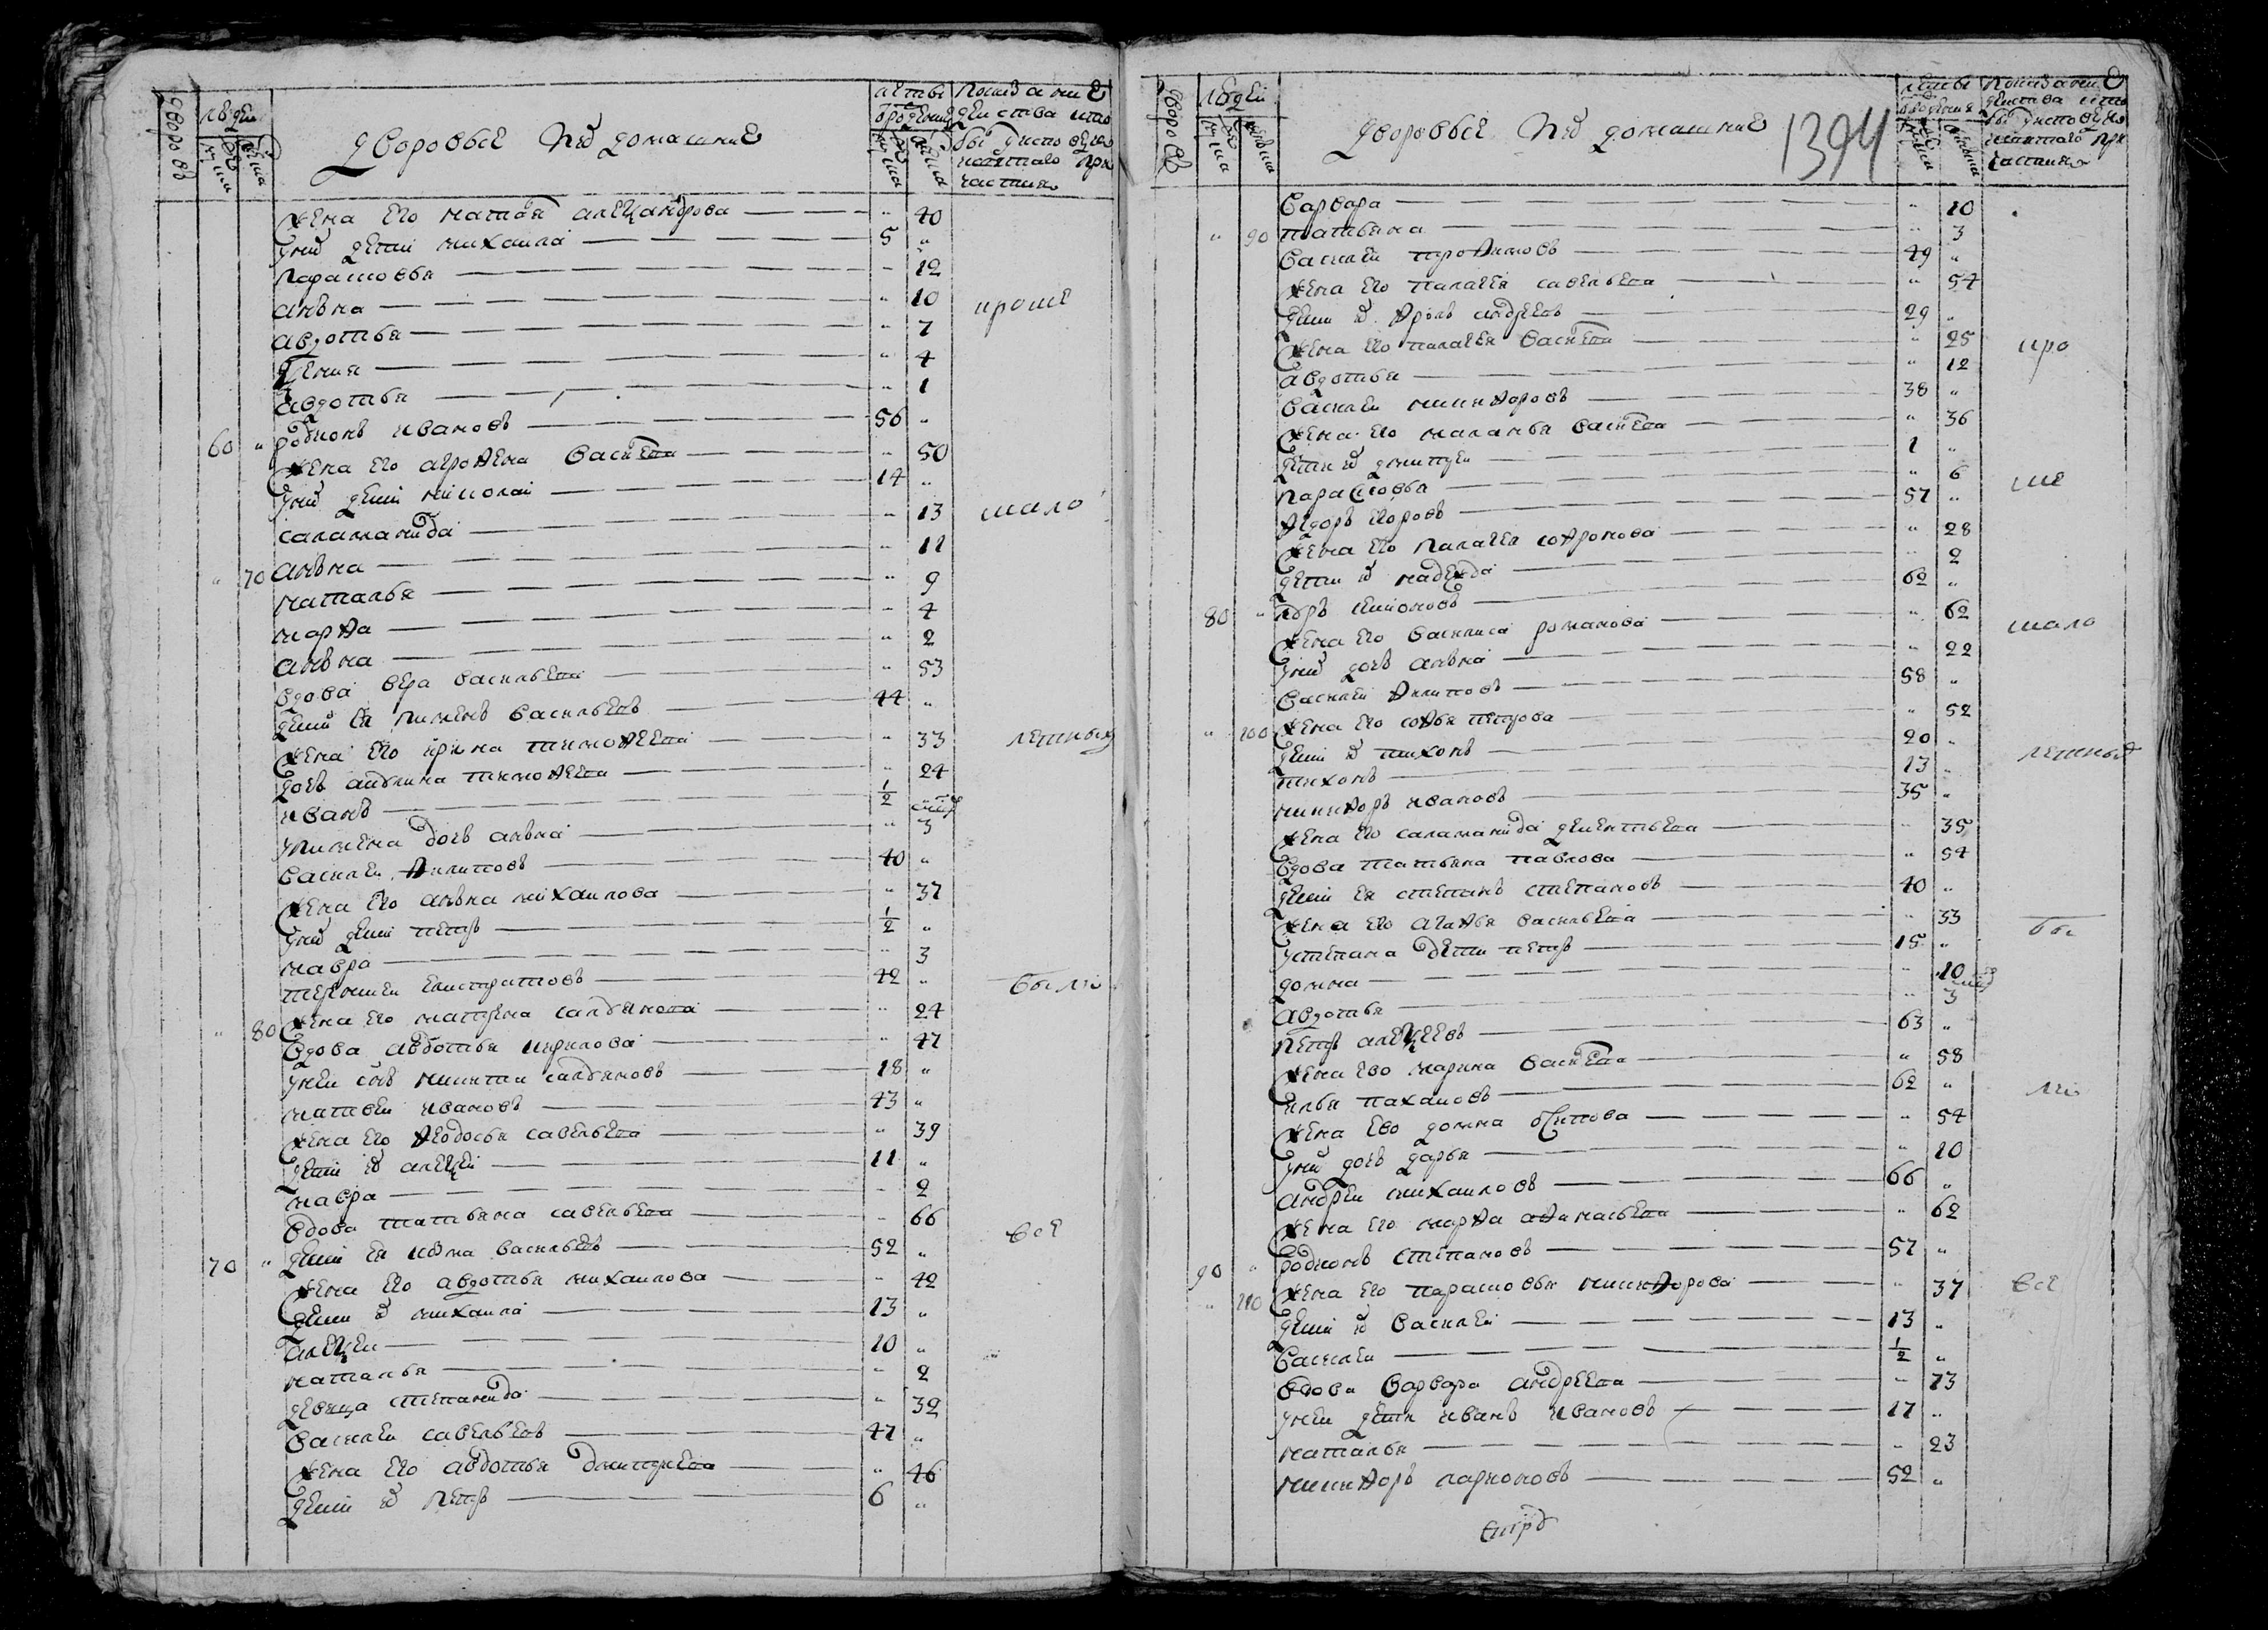 дворовъ
людей
дворовые люди домашние
жена его наталя алеѯандрова — " 40
у них дети михаила — 5 "
парасковья — " 12
анна — " 10
кроме
авдотья — " 7
ѯения — " 4
авдотья — " 1
60 " родионъ ивановъ — 56 "
жена его агрофена васильева — " 50
у них дети николай — 14 "
саламанида — " 13
мало
" 70 анна — " 11
наталья — " 9
марфа — " 4
анна — " 2
вдова вера васильева — " 53
дети ея пименъ васильевъ — 44 "
жена его ирина тимофеева — " 33
летных
дочь акулина тимофеева — " 24
иванъ — 1/2 "
у пимена дочь анна — " 3
василей филиповъ — 40 "
жена его анна михаилова — " 37
у них дети петръ — 1/2 "
мавра — " 3
терентей елистратовъ — 42 "
были
" 80 жена его матрена
вдова авдотья кирилова — " 47
у неи сынъ никита — 18 "
матвеи ивановъ — 43 "
жена его феодосья савельева — " 39
дети их алеѯей — 11 "
мавра — " 2
вдова татьяна савельева — " 66
все
70 " дети ея козма васильевъ — 52 "
жена его авдотья михаилова — " 42
дети их михаила — 13 "
алеѯеи — 10 "
наталья — " 2
девица степанида — " 32
василеи савельевъ — 47 "
жена его авдотья дмитриева — " 46
дети их петръ — 6 "
дворовъ
людей
дворовые люди домашние
1394
варвара — " 10
" 90 татьяна — " 3
василеи трофимовъ — 49 "
жена его палагея савельева — " 54
дети их фролъ андреевъ — 29 "
жена его палагея васильева — " 25
кро
авдотья — " 12
василеи никифоровъ — 38 "
жена его маланья васильева — " 36
дети их дмитреи — 1 "
парасковья — " 6
ме
федоръ егоровъ — 57 "
жена его палагея софронова — " 28
дети их надежда — " 2
80 " — 62 "
жена его василиса романова — " 62
мало
у них дочь анна — " 22
василеи филиповъ — 58 "
" 100 жена его софья петрова — " 52
дети их тихонъ — 20 "
летных
тихонъ — 13 "
никифоръ ивановъ — 35 "
жена его саламанида дементьева — " 35
вдова татьяна павлова — " 54
дети ея степанъ степановъ — 40 "
жена его агафья васильева — " 33
бы
у степана дети петръ — 15 "
домна — " 10
авдотья — " 3
петръ алеѯеевъ — 63 "
жена ево марина васильева — " 58
ли
илья пахамовъ — 62 "
жена ево домна осипова — " 54
у них дочь дарья — " 10
андреи михаиловъ — 66 "
жена его марфа афанасьева — " 62
90 " родионъ степановъ — 57 "
" 110 жена его парасковья никифорова — " 37
все
дети их василеи — 13 "
василеи — 1/2 "
вдова варвара андреева — " 73
у неи дети иванъ ивановъ — 17 "
наталья — " 23
никифоръ ларионовъ — 52 "